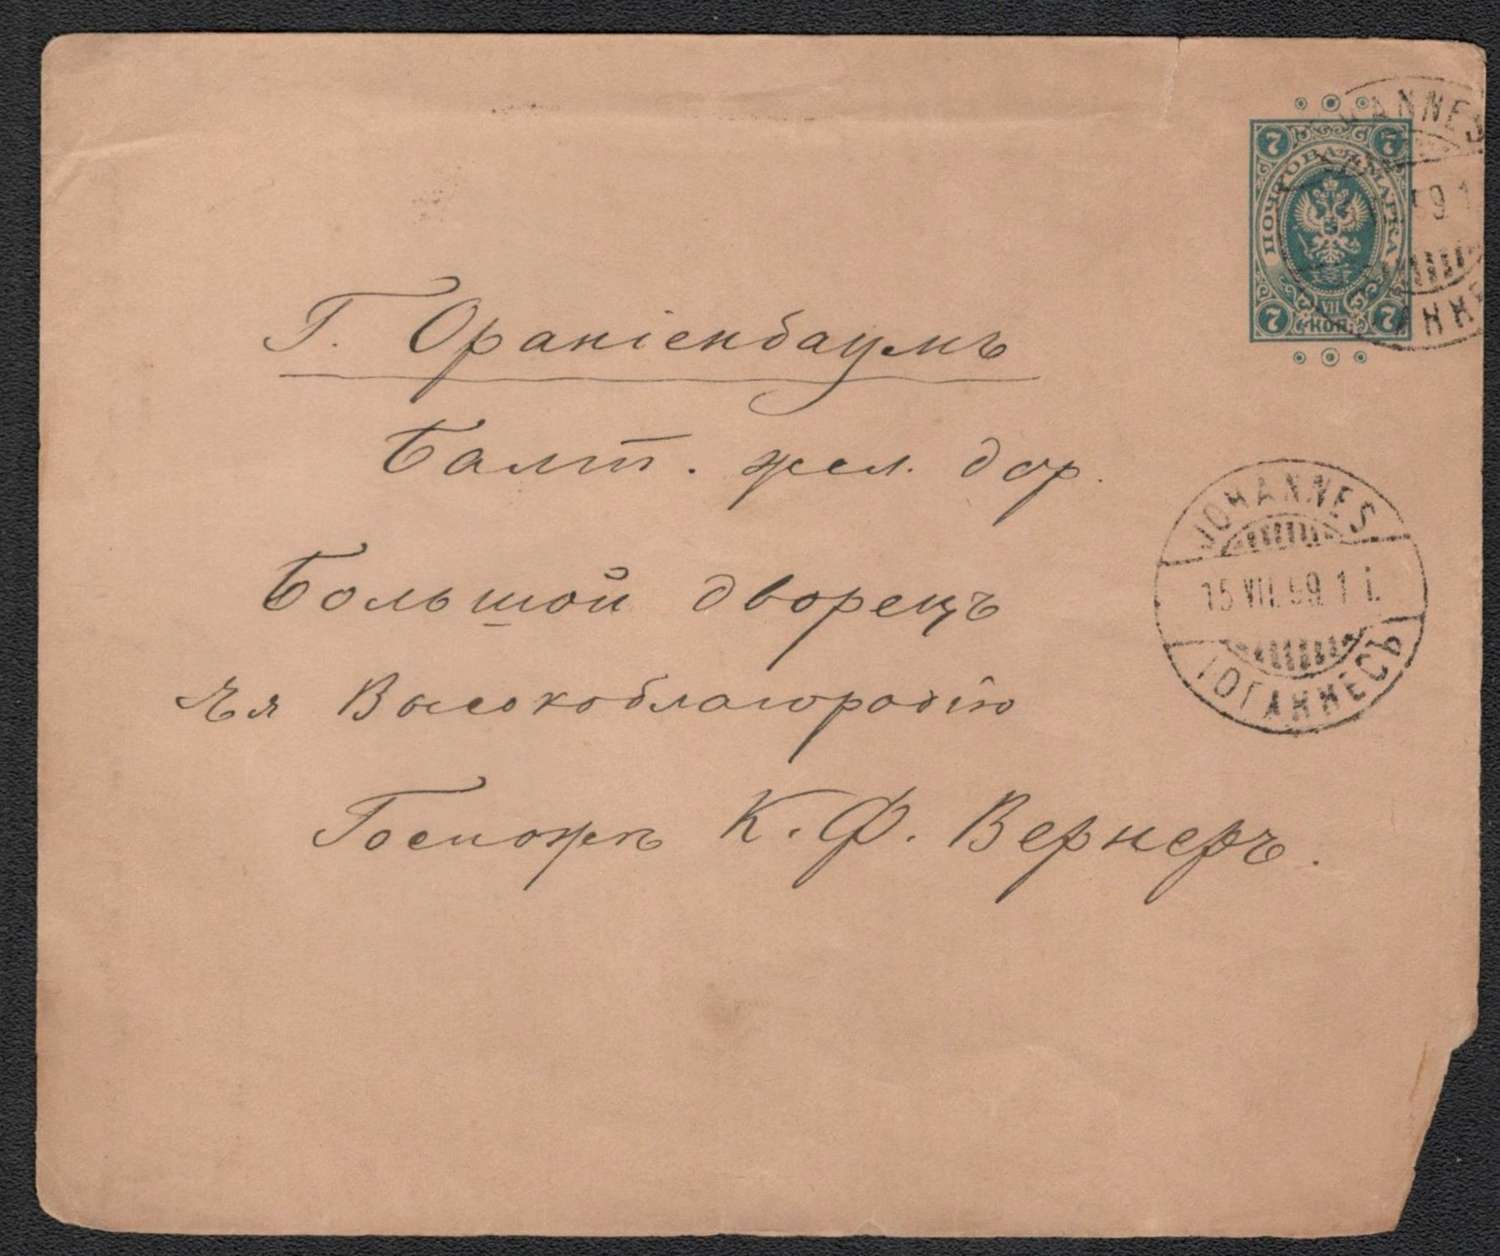 7 7
ПОЧТОВАЯ МАРКА
VII
7 КОП. 7
HANNES
9 1
АННЕ
Г. Ораніенбаумъ
Балт. жел. дор.
Большой дворецъ
Ея Высокоблагородію
Госпожѣ К. Ф. Вернеръ.
JOHANNES
15 VII. 99. 1 i.
ІОГАННЕСЪ